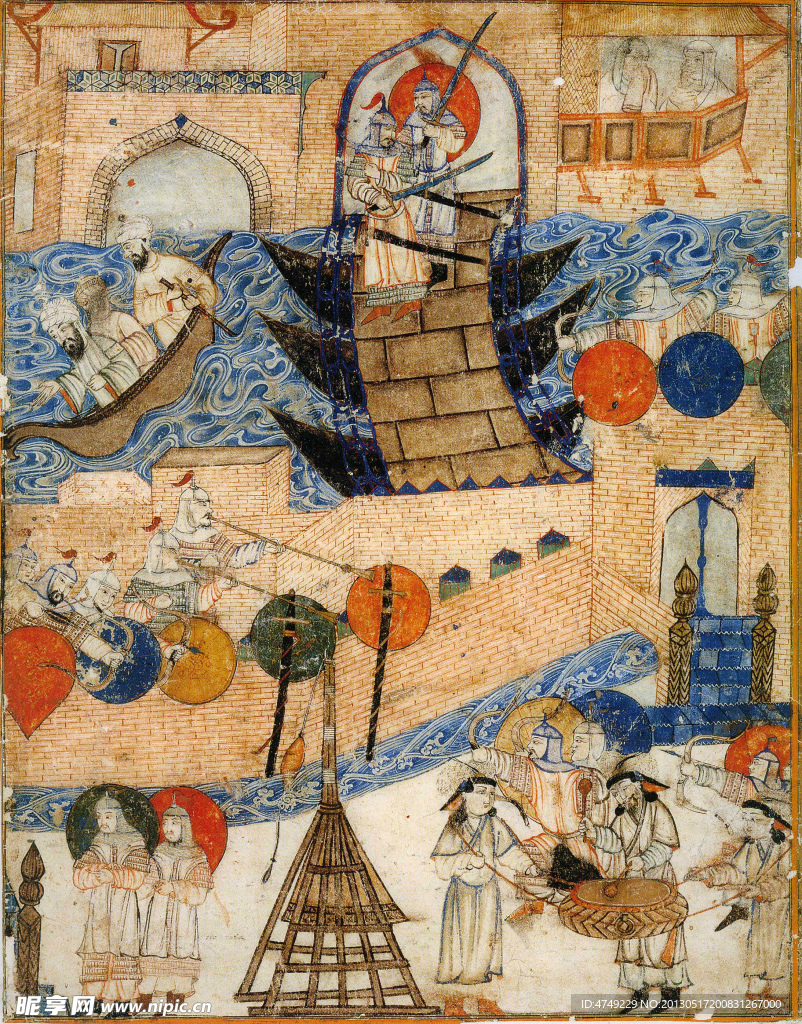 昵享网 www.nipic.cn
ID:4749229 NO:20130517200831267000